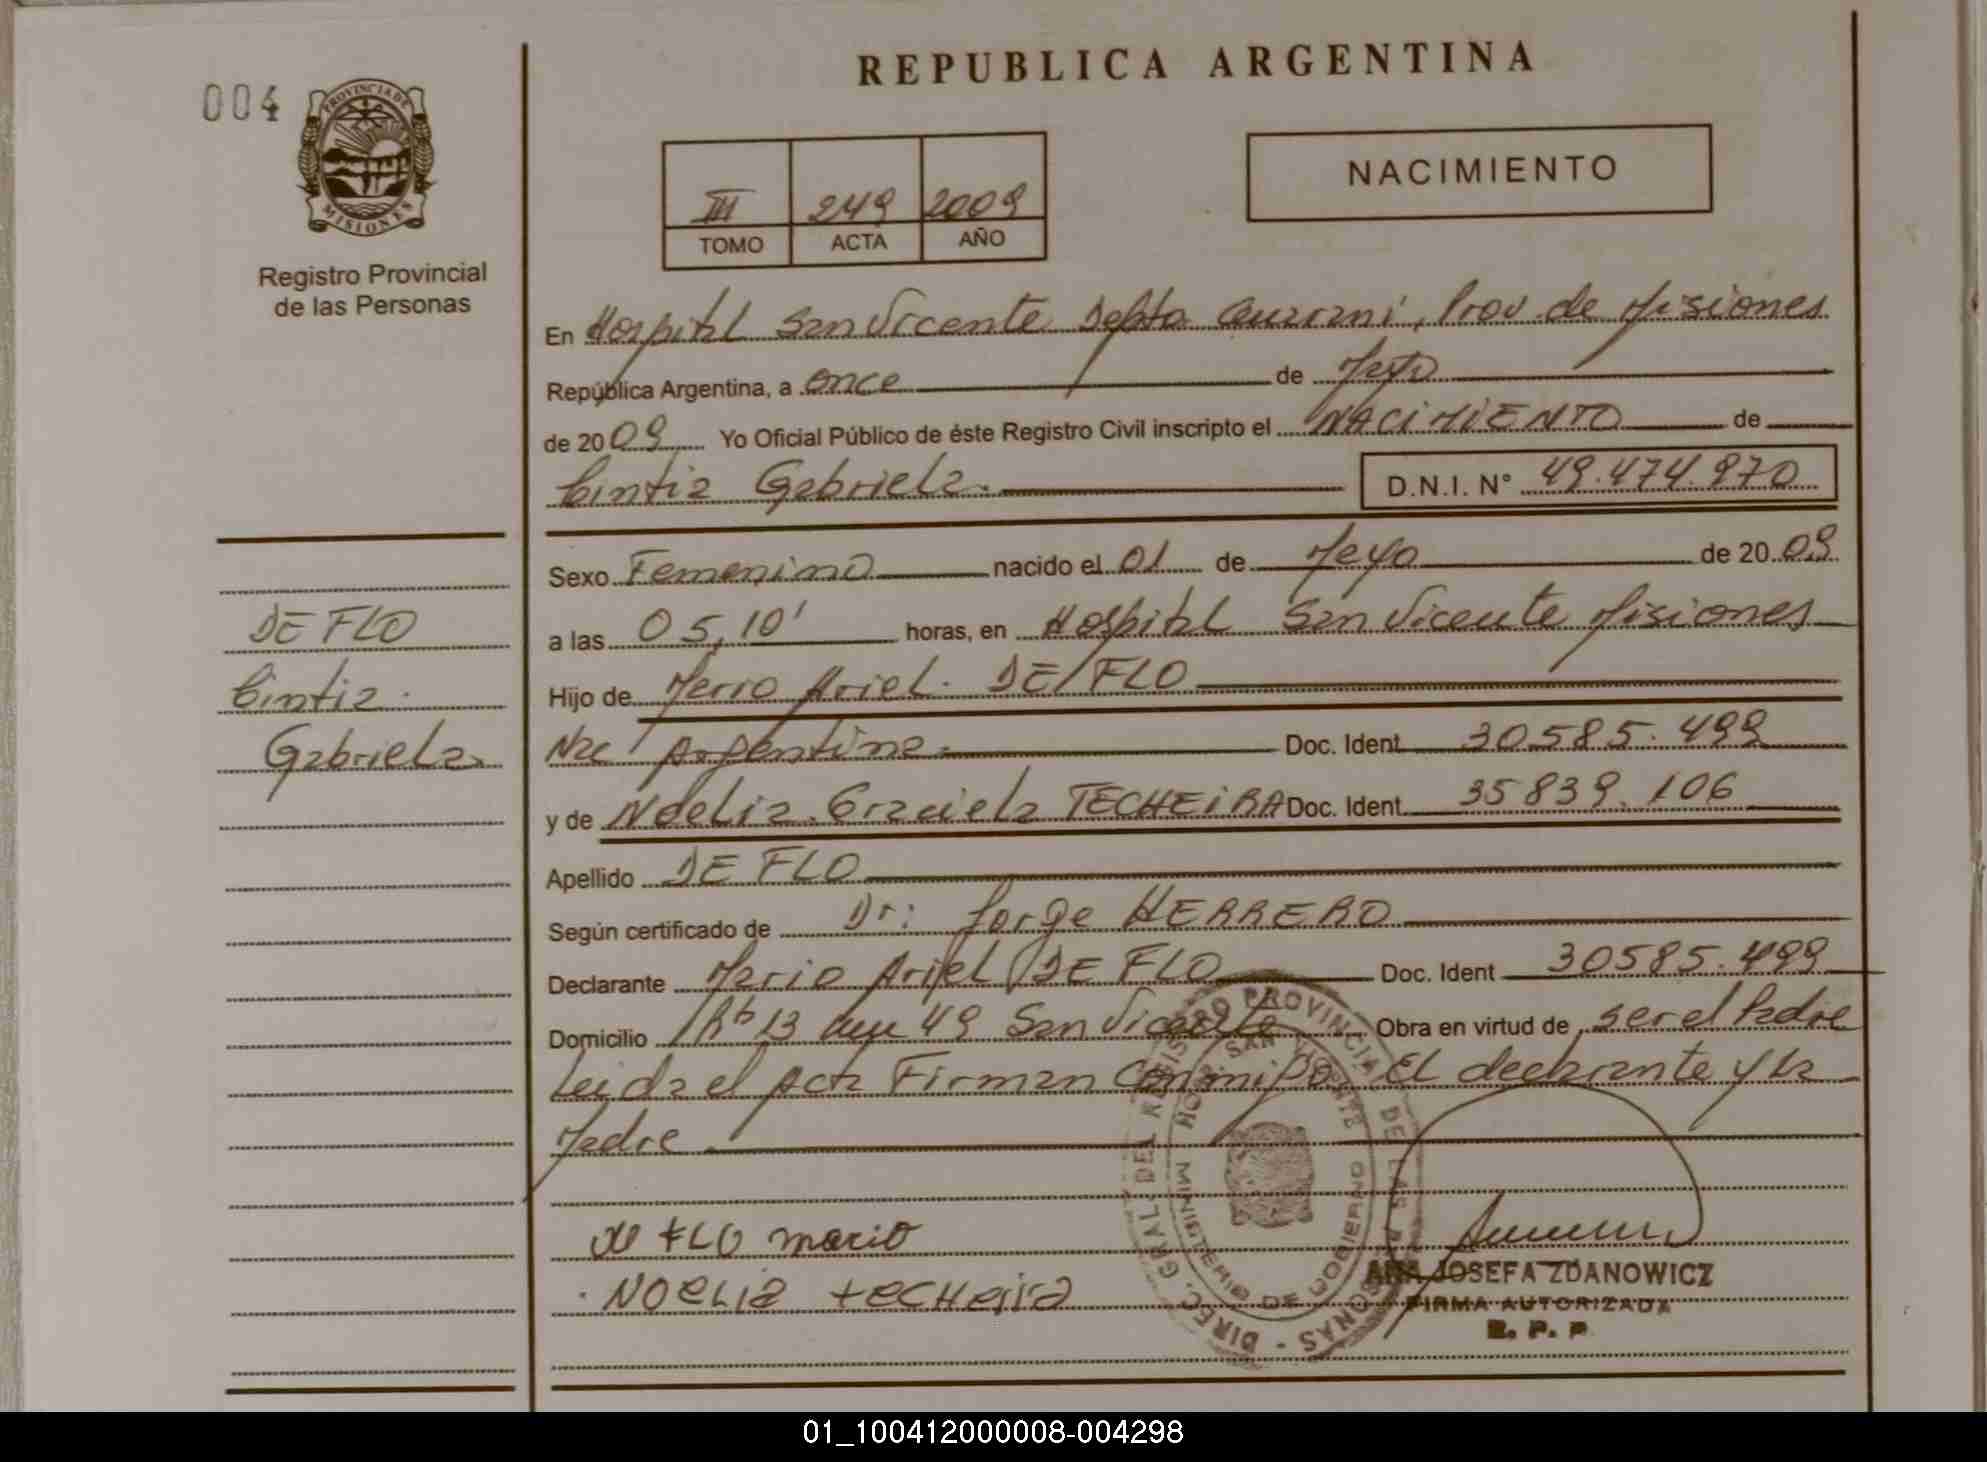 REPUBLICA ARGENTINA
004
PROVINCIA DE
MISIONES
Registro Provincial
de las Personas
NACIMIENTO
III 249 2009
TOMO ACTA AÑO
En Hospital San Vicente Depto Guarani, Prov. de Misiones
República Argentina, a once de Mayo
de 2009 Yo Oficial Público de éste Registro Civil inscripto el NACIMIENTO de
Cintia Gabriela. D.N.I. N° 49.474.970
Sexo Femenino nacido el 01 de Mayo de 2009
a las 05,10' horas, en Hospital San Vicente Misiones
Hijo de Mario Ariel. DE FLO
Nac Argentina. Doc. Ident 30585.499
y de Noelia Graciela TECHEIRA Doc. Ident. 35839.106
Apellido DE FLO
Según certificado de Dr: Jorge HERRERO
Declarante Mario Ariel DE FLO Doc. Ident 30585.499
Domicilio 13 49 San Vicente Obra en virtud de ser el Padre
Leida el acta Firman Conmigo El declarante y la
Madre
DE FLO
Cintia.
Gabriela
de FLO mario
NOELIA techeira
DIREC. GRAL. DEL REGISTRO PROVINCIAL DE LAS PERSONAS
HOSP. SAN VICENTE
MINISTERIO DE GOBIERNO
ANA JOSEFA ZDANOWICZ
FIRMA AUTORIZADA
R. P. P.
01_100412000008-004298